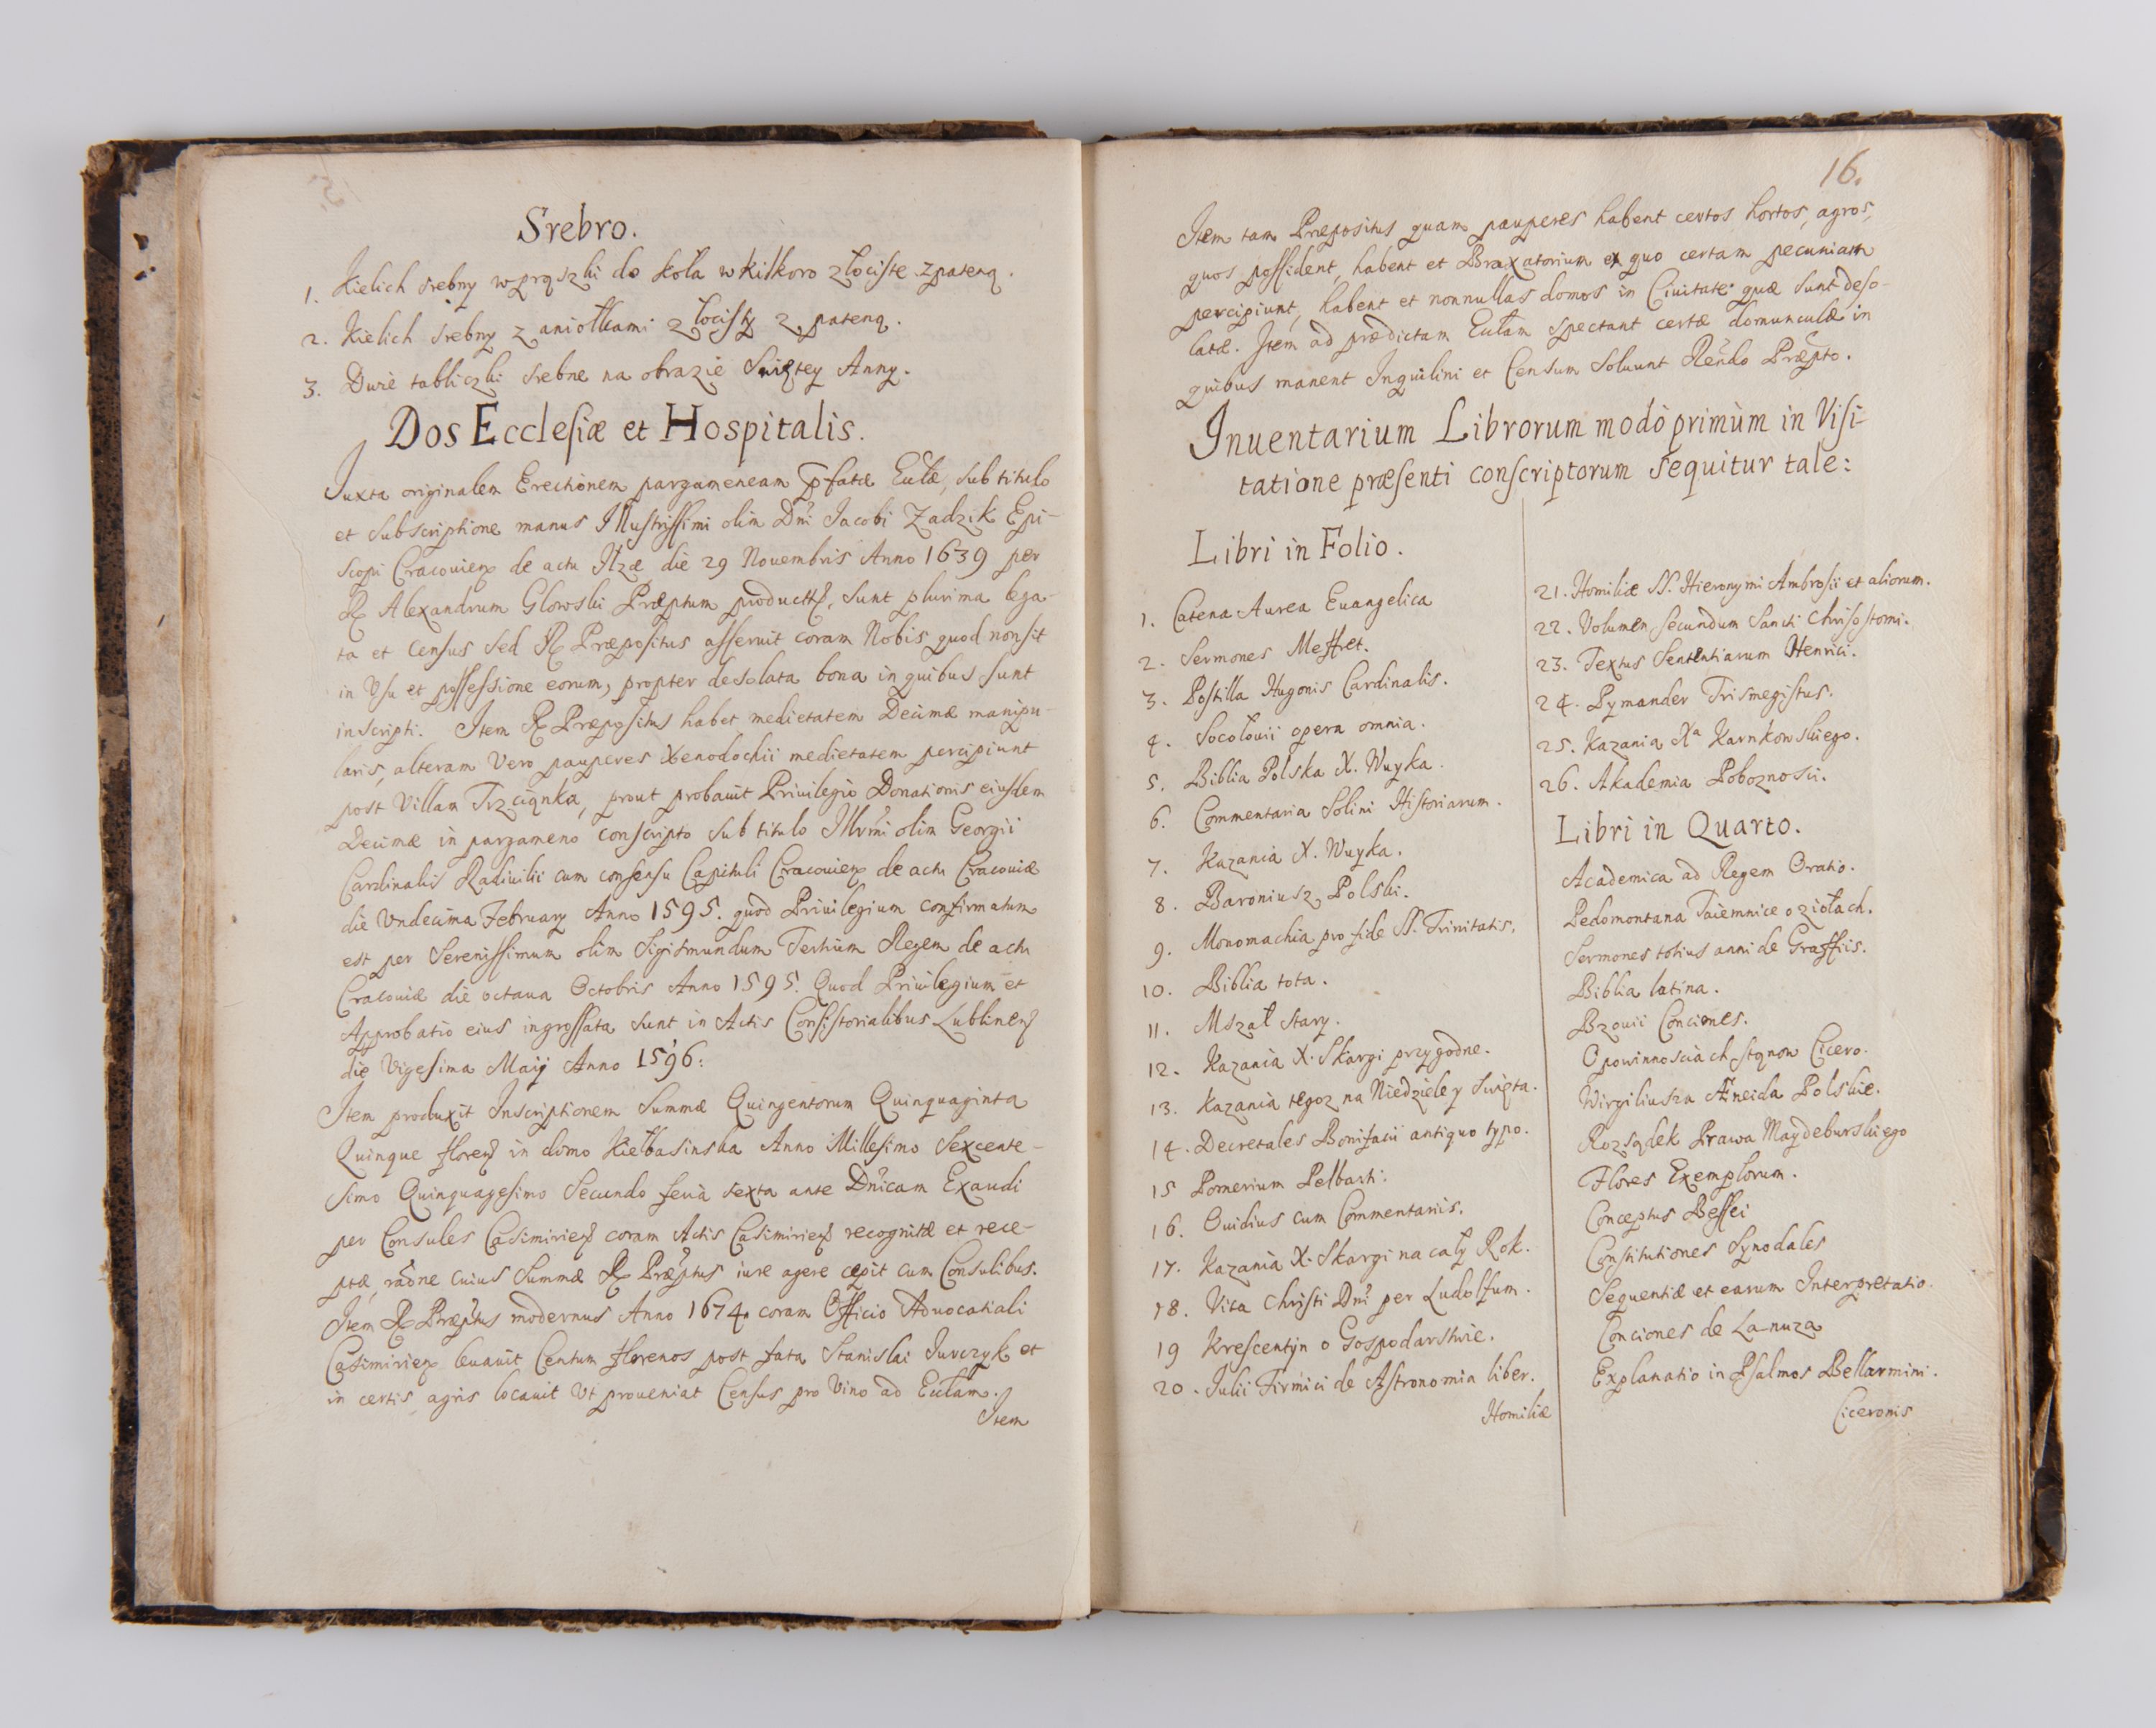 Srebro.
1. Kielich srebny w prązki do koła w kilkoro złociste z pateną.
2. Kielich srebny z aniołkami złocisty z pateną.
3. Dwie tabliczki srebne na obrazie Swiętey Anny.
Dos Ecclesiæ et Hospitalis.
Iuxta originalem Erectionem pargameneam p̄fatæ Ecłæ, sub titulo
et subscriptione manus Illustrissimi olim Dn̄i Iacobi Zadzik Epi-
scopi Cracovien̄ de actu Ilzæ die 29 Novembris Anno 1639 per
R Alexandrum Glowski Præptum product̄, sunt plurima lega-
ta et Census sed R Præpositus asseruit coram Nobis quod non sit
in Vsu et possessione eorum, propter desolata bona in quibus sunt
inscripti. Item R Præpositus habet medietatem Decimæ manipu-
laris, alteram Vero pauperes Xenodochii medietatem percipiunt
post Villam Trzciąnka, prout probavit Privilegio Donationis eiusdem
Decimæ in pargameno conscripto sub titulo Illvm̄i olim Georgii
Cardinalis Radivilii cum consensu Capituli Cracovien̄ de actu Cracoviæ
die Vndecima February Anno 1595. quod Privilegium confirmatum
est per Serenissimum olim Sigismundum Tertium Regem de actu
Cracoviæ die octava Octobris Anno 1595. Quod Privilegium et
Approbatio eius ingrossata sunt in Actis Consistorialibus Lublinen̄
die Vigesima Maij Anno 1596:
Item produxit Inscriptionem Summæ Quingentorum Quinquaginta
Quinque floren̄ in domo Kiełbasinska Anno Millesimo Sexcente-
simo Quinquagesimo Secundo feria sexta ante Dn̄icam Exaudi
per Consules Casimirien̄ coram Actis Casimirien̄ recognitæ et rece-
ptæ, rao̅ne cuius Summæ R Præptus iure agere cepit cum Consulibus.
Item R Præptus modernus Anno 1674. coram Officio Advocatiali
Casimirien̄ levavit Centum florenos post fata Stanislai Iurczyk et
in certis agris locavit Vt proveniat Census pro Vino ad Ecłam.
Item
16.
Item tam Præpositus quam pauperes habent certos hortos, agros,
quos possident, habent et Braxatorium ex quo certam pecuniam
percipiunt, habent et nonnullas domos in Civitate quæ sunt deso-
latæ. Item ad prædictam Ecłam spectant certæ domunculæ in
quibus manent Inquilini et Censum Solvunt Ren̄do Præpto.
Inventarium Librorum modò primùm in Visi-
tatione præsenti conscriptorum sequitur tale:
Libri in Folio.
1. Catena Aurea Evangelica
2. Sermones Meffret.
3. Postilla Hugonis Cardinalis.
4. Socolovii opera omnia.
5. Biblia Polska X. Wuyka.
6. Commentaria Solini Historiarum.
7. Kazania X. Wuyka.
8. Baroniusz Polski.
9. Monomachia pro fide SS. Trinitatis.
10. Biblia tota.
11. Mszał stary.
12. Kazania X. Skargi przygodne.
13. Kazania tegoz na Niedziele y Swięta.
14. Decretales Bonifacii antiquo typo.
15 Pomerium Pelbarti:
16. Ovidius cum Commentariis.
17. Kazania X. Skargi na cały Rok.
18. Vita Christi Dn̄i per Ludolfum.
19 Krescentyn o Gospodarstwie.
20. Iulii Firmici de Astronomia liber.
Homiliæ
21. Homiliæ SS. Hieronymi Ambrosii et aliorum.
22. Volumen secundum Sancti Chrisostomi.
23. Textus Sententiarum Henrici.
24. Pymander Trismegistus.
25. Kazania Xa Karnkowskiego.
26. Akademia Poboznosci.
Libri in Quarto.
Academica ad Regem Oratio.
Pedomontana Taiemnice o ziołach.
Sermones totius anni de Graffiis.
Biblia latina.
Bzovii Conciones.
O powinnosciach stąnow Cicero.
Wirgiliusza Æneida Polskie.
Rozsądek Prawa Maydeburskiego
Flores Exemplorum.
Conceptus Bessei
Constitutiones Synodales
Sequentiæ et earum Interpretatio
Conciones de Lanuza
Explanatio in Psalmos Bellarmini.
Ciceronis